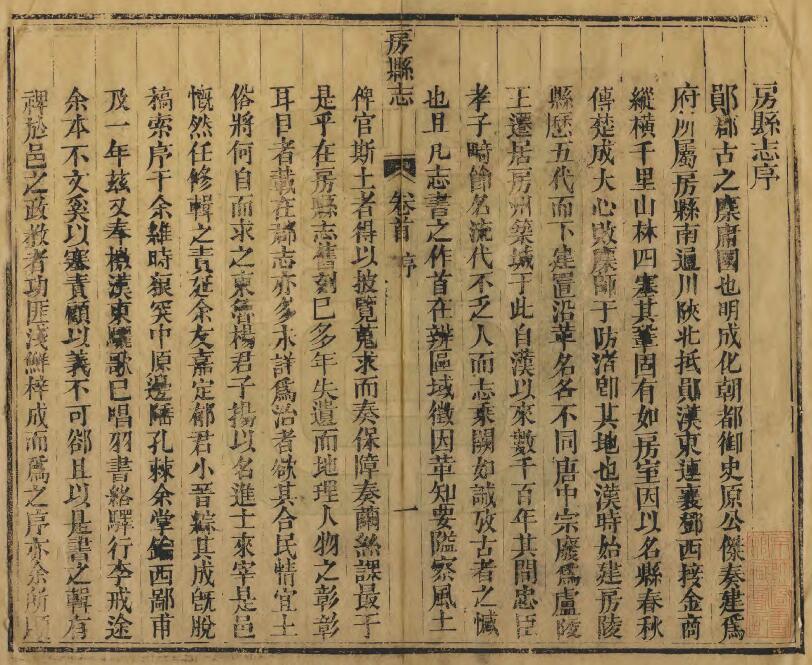 房縣志序
鄖郡古之麇庸國也明成化朝都御史原公傑奏建爲
府所屬房縣南通川陝北抵鄖漢東連襄鄧西接金商
縱橫千里山林四塞其鞏固有如房室因以名縣春秋
傳楚成大心敗麇師于防渚卽其地也漢時始建房陵
縣歷五代而下建置沿革名各不同唐中宗廢爲盧陵
王遷居房州築城于此自漢以來數千百年其間忠臣
孝子時節名流代不乏人而志乘闕如誠攷古者之憾
也且凡志書之作首在辨區域徵因革知要隘察風土
房縣志
卷首 序
一
俾官斯土者得以披覽蒐求而奏保障奏繭絲課最于
是乎在房縣志舊刻已多年失遺而地理人物之彰彰
耳目者載在郡志亦多未詳爲治者欲其合民情宜土
俗將何自而求之東魯楊君子揚以名進士來宰是邑
慨然任修輯之責延余友嘉定郁君小晉綜其成旣脫
稿索序于余維時狼突中原邊陲孔棘余堂綸西鄙甫
及一年茲又奉檄漢東驪歌已唱羽書絡驛行李戒途
余本不文奚以塞責顧以義不可郤且以是書之輯有
裨於邑之政教者功匪淺鮮梓成而爲之序亦余所